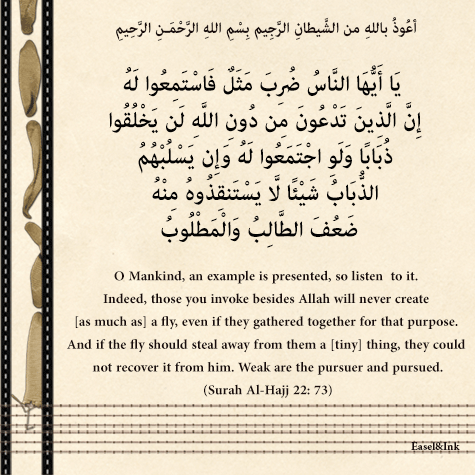 أعُوذُ باللهِ من الشَّيطانِ الرَّجِيم بِسْمِ اللهِ الرَّحْمَـنِ الرَّحِيمِ
يَا أَيُّهَا النَّاسُ ضُرِبَ مَثَلٌ فَاسْتَمِعُوا لَهُ
إِنَّ الَّذِينَ تَدْعُونَ مِن دُونِ اللَّهِ لَن يَخْلُقُوا
ذُبَابًا وَلَوِ اجْتَمَعُوا لَهُ وَإِن يَسْلُبْهُمُ
الذُّبَابُ شَيْئًا لَّا يَسْتَنقِذُوهُ مِنْهُ
ضَعُفَ الطَّالِبُ وَالْمَطْلُوبُ
O Mankind, an example is presented, so listen to it.
Indeed, those you invoke besides Allah will never create
[as much as] a fly, even if they gathered together for that purpose.
And if the fly should steal away from them a [tiny] thing, they could
not recover it from him. Weak are the pursuer and pursued.
(Surah Al-Hajj 22: 73)
Easel&Ink